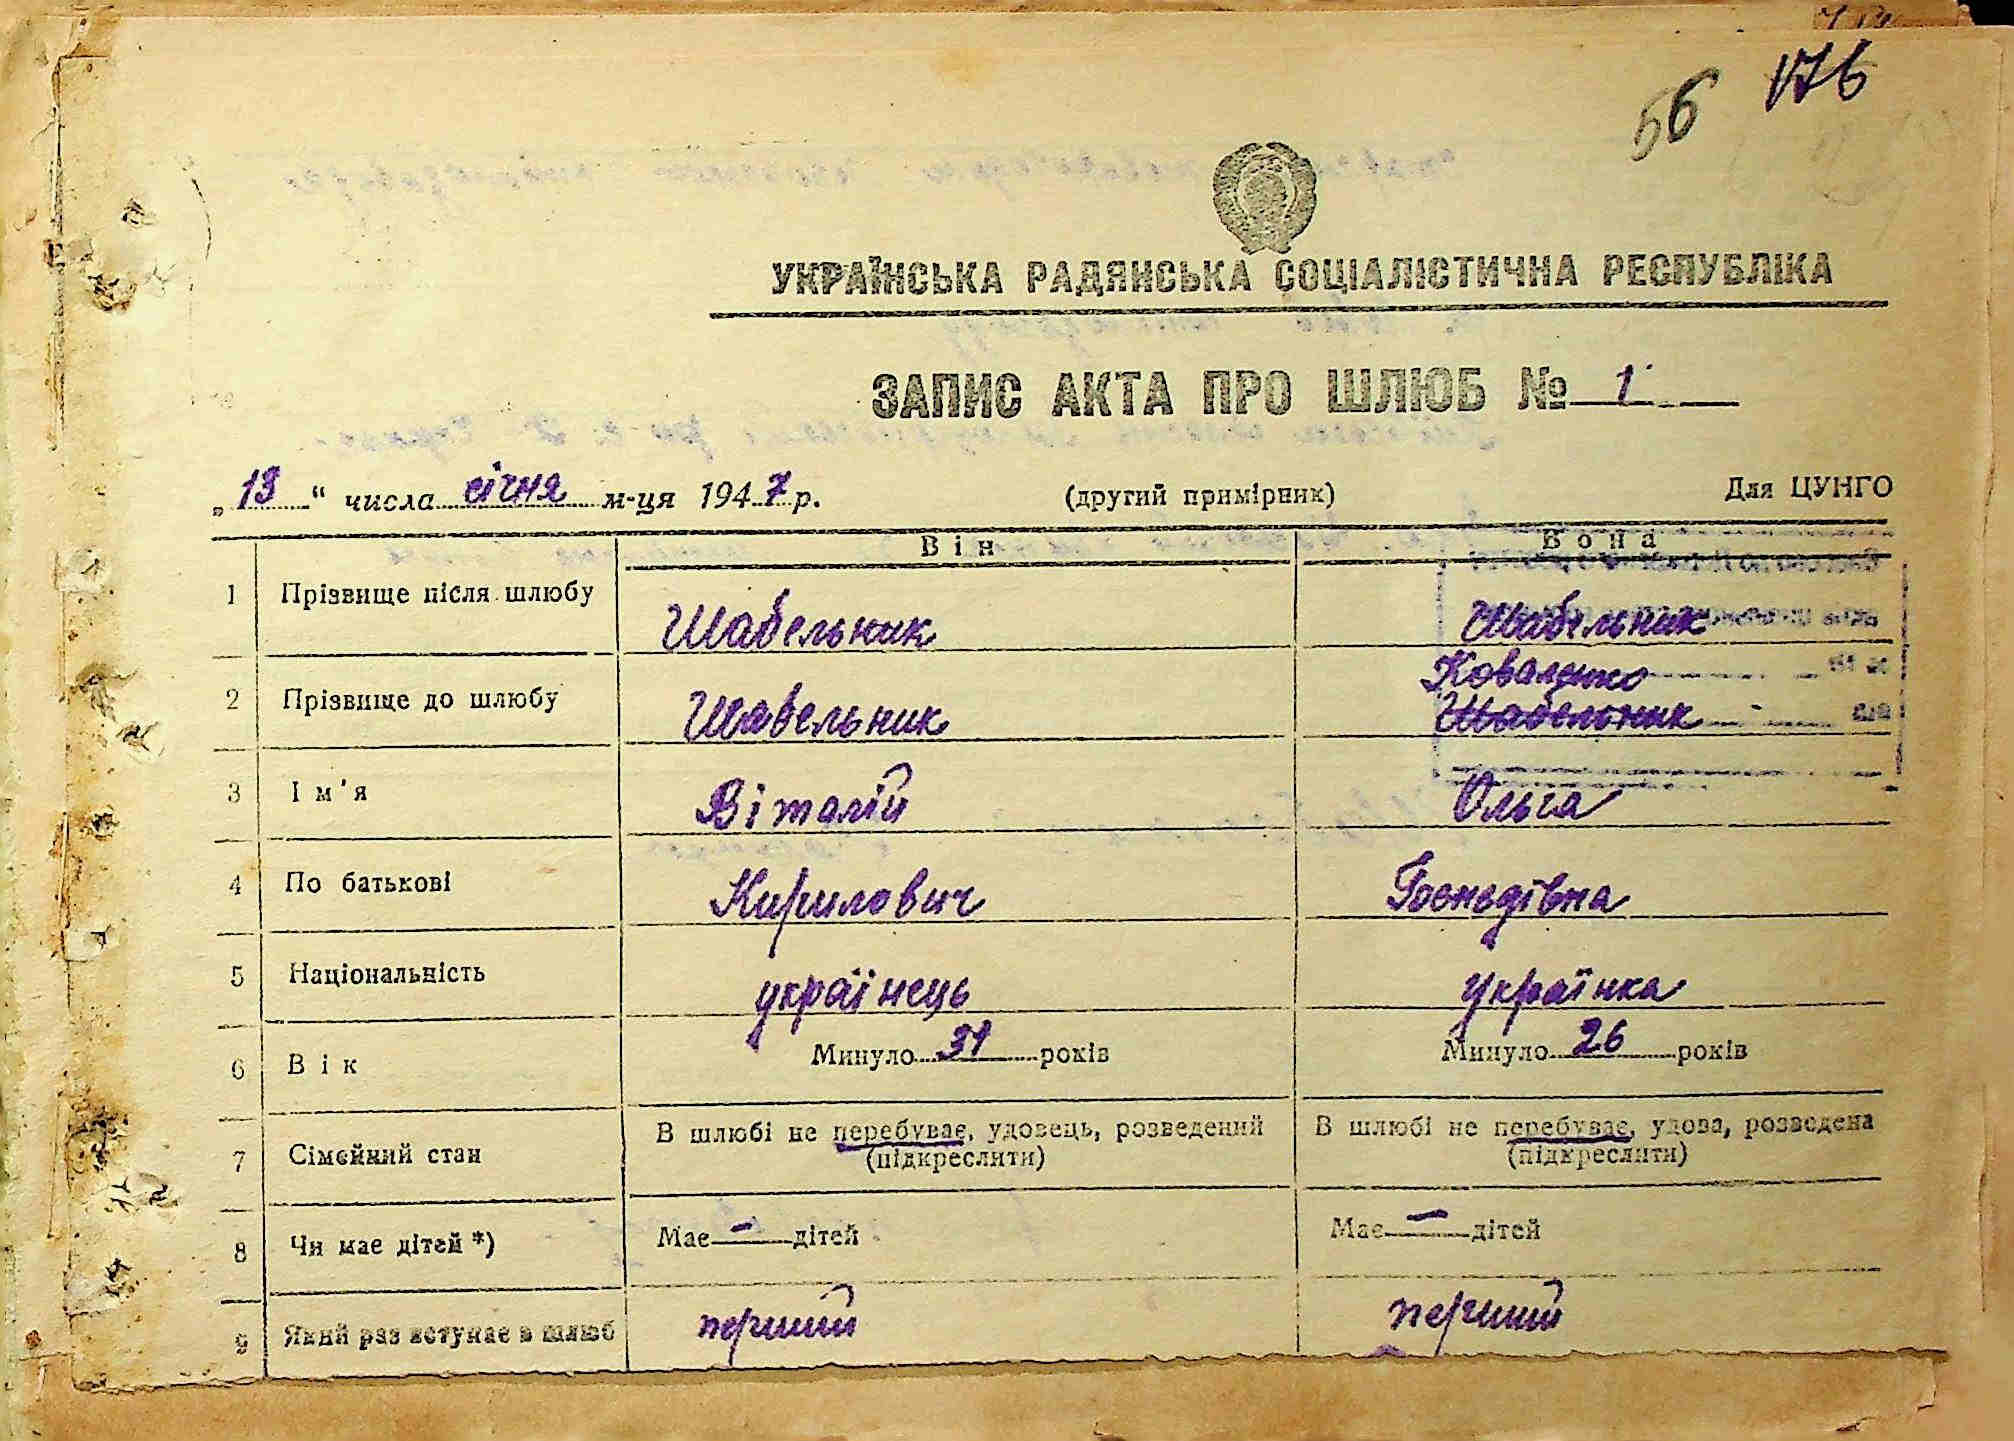 56 176
УКРАЇНСЬКА РАДЯНСЬКА СОЦІАЛІСТИЧНА РЕСПУБЛІКА
ЗАПИС АКТА ПРО ШЛЮБ № 1
„13“ числа січня м-ця 1947 р. (другий примірник) Для ЦУНГО
Він Вона
1 Прізвище після шлюбу Шабельник Шабельник
Коваленко
2 Прізвище до шлюбу Шабельник Шабельник
3 Ім'я Віталій Ольга
4 По батькові Кирилович
5 Національність українець українка
6 Вік Минуло 31 років Минуло 26 років
7 Сімейний стан В шлюбі не перебуває, удовець, розведений В шлюбі не перебуває, удова, розведена
(підкреслити) (підкреслити)
8 Чи має дітей *) Має — дітей Має — дітей
9 Який раз вступає в шлюб перший перший